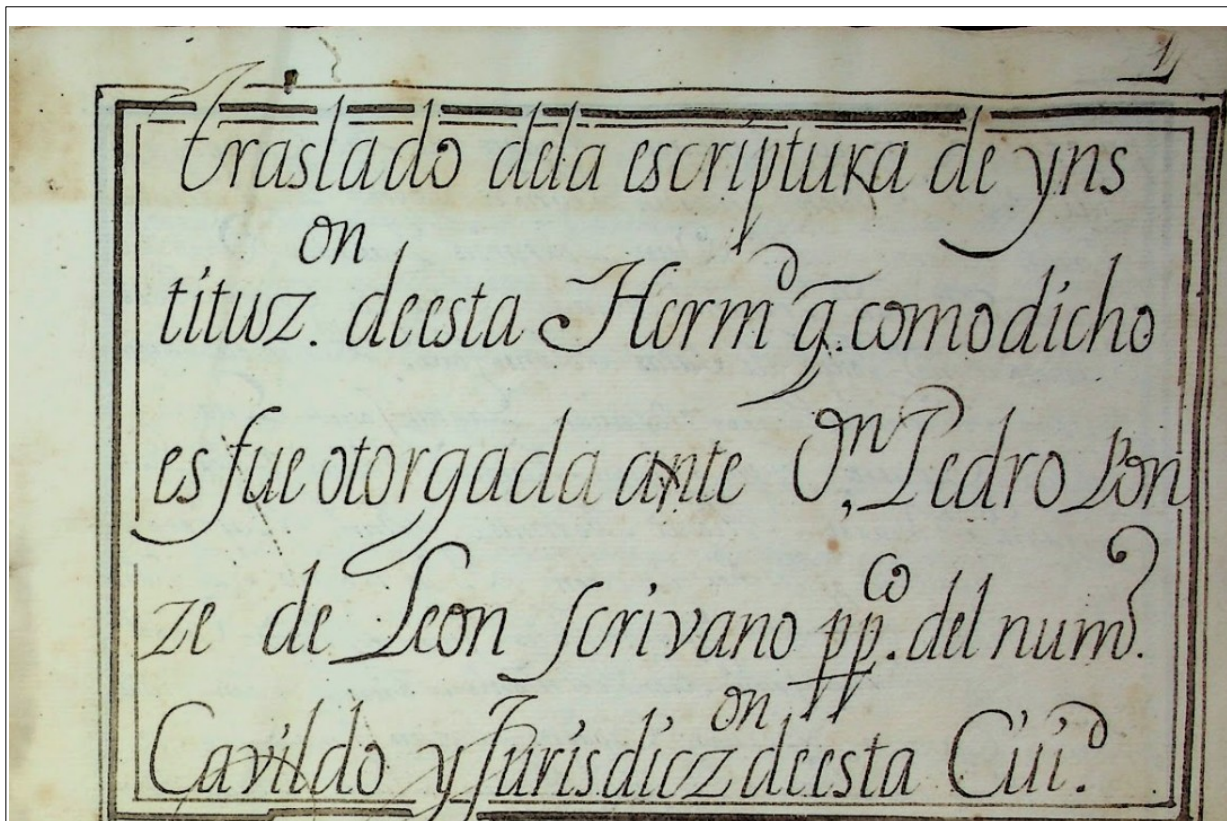 1
traslado dela escriptura de yns
tituz.on deesta Hermd q. como dicho
es fue otorgada ante Dn. Pedro Pon
ze de Leon scrivano ppco. del numo.
Cavildo y Jurisdiczon deesta Ciud.